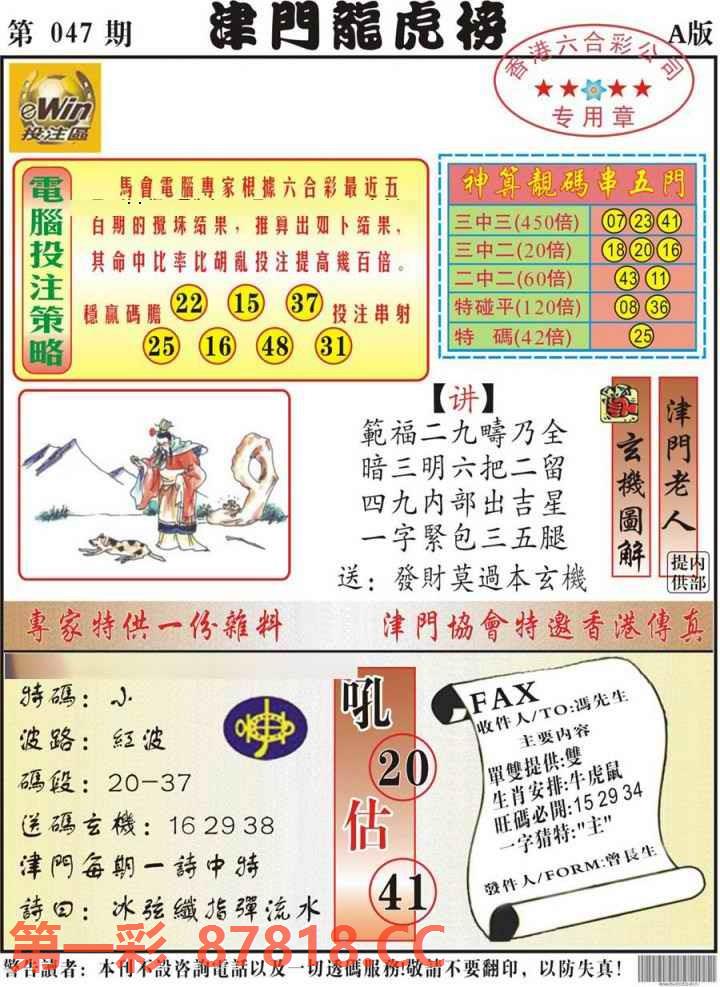 第 047 期
津門龍虎榜
A版
香港六合彩公司
专用章
eWin
投注區
電腦投注策略
馬會電腦專家根據六合彩最近五
百期的攪珠结果，推算出如卜结果，
其命中比率比胡亂投注提高幾百倍。
穩贏碼膽 22 15 37 投注串射
25 16 48 31
神算靚碼串五門
三中三(450倍) 07 23 41
三中二(20倍) 18 20 16
二中二(60倍) 43 11
特碰平(120倍) 08 36
特 碼(42倍) 25
【讲】
範福二九疇乃全
暗三明六把二留
四九内部出吉星
一字緊包三五腿
送：發財莫過本玄機
玄機圖解
津門老人
内部提供
專家特供一份雜料
津門協會特邀香港傳真
特碼：小
波路：紅波
碼段：20-37
送碼玄機：16 29 38
津門每期一詩中特
詩曰：冰弦纖指彈流水
吼
20
估
41
FAX
收件人/TO:馮先生
主要内容
單雙提供:雙
生肖安排:牛虎鼠
旺碼必開:15 29 34
一字猜特:"主"
發件人/FORM:曾長生
第一彩 87818.CC
警告讀者：本刊不設咨詢電話以及一切透碼服務!敬請不要翻印，以防失真！